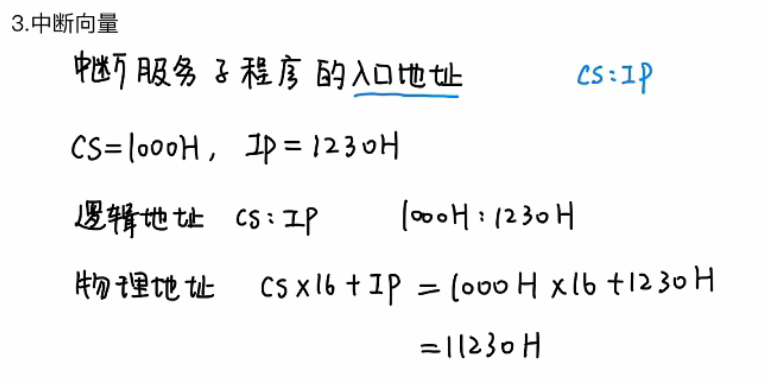 3.中断向量
中断服务子程序的入口地址 CS:IP
CS=1000H, IP=1230H
逻辑地址 CS:IP 1000H:1230H
物理地址 CS×16+IP =1000H×16+1230H
=11230H